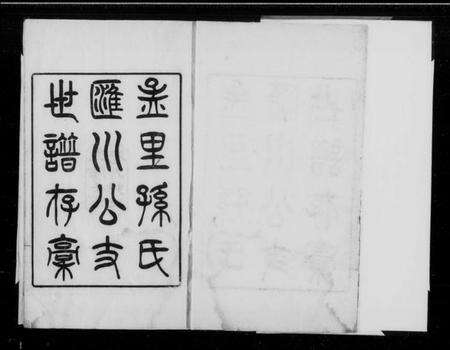 孟里孫氏
匯川公支
世譜存稾